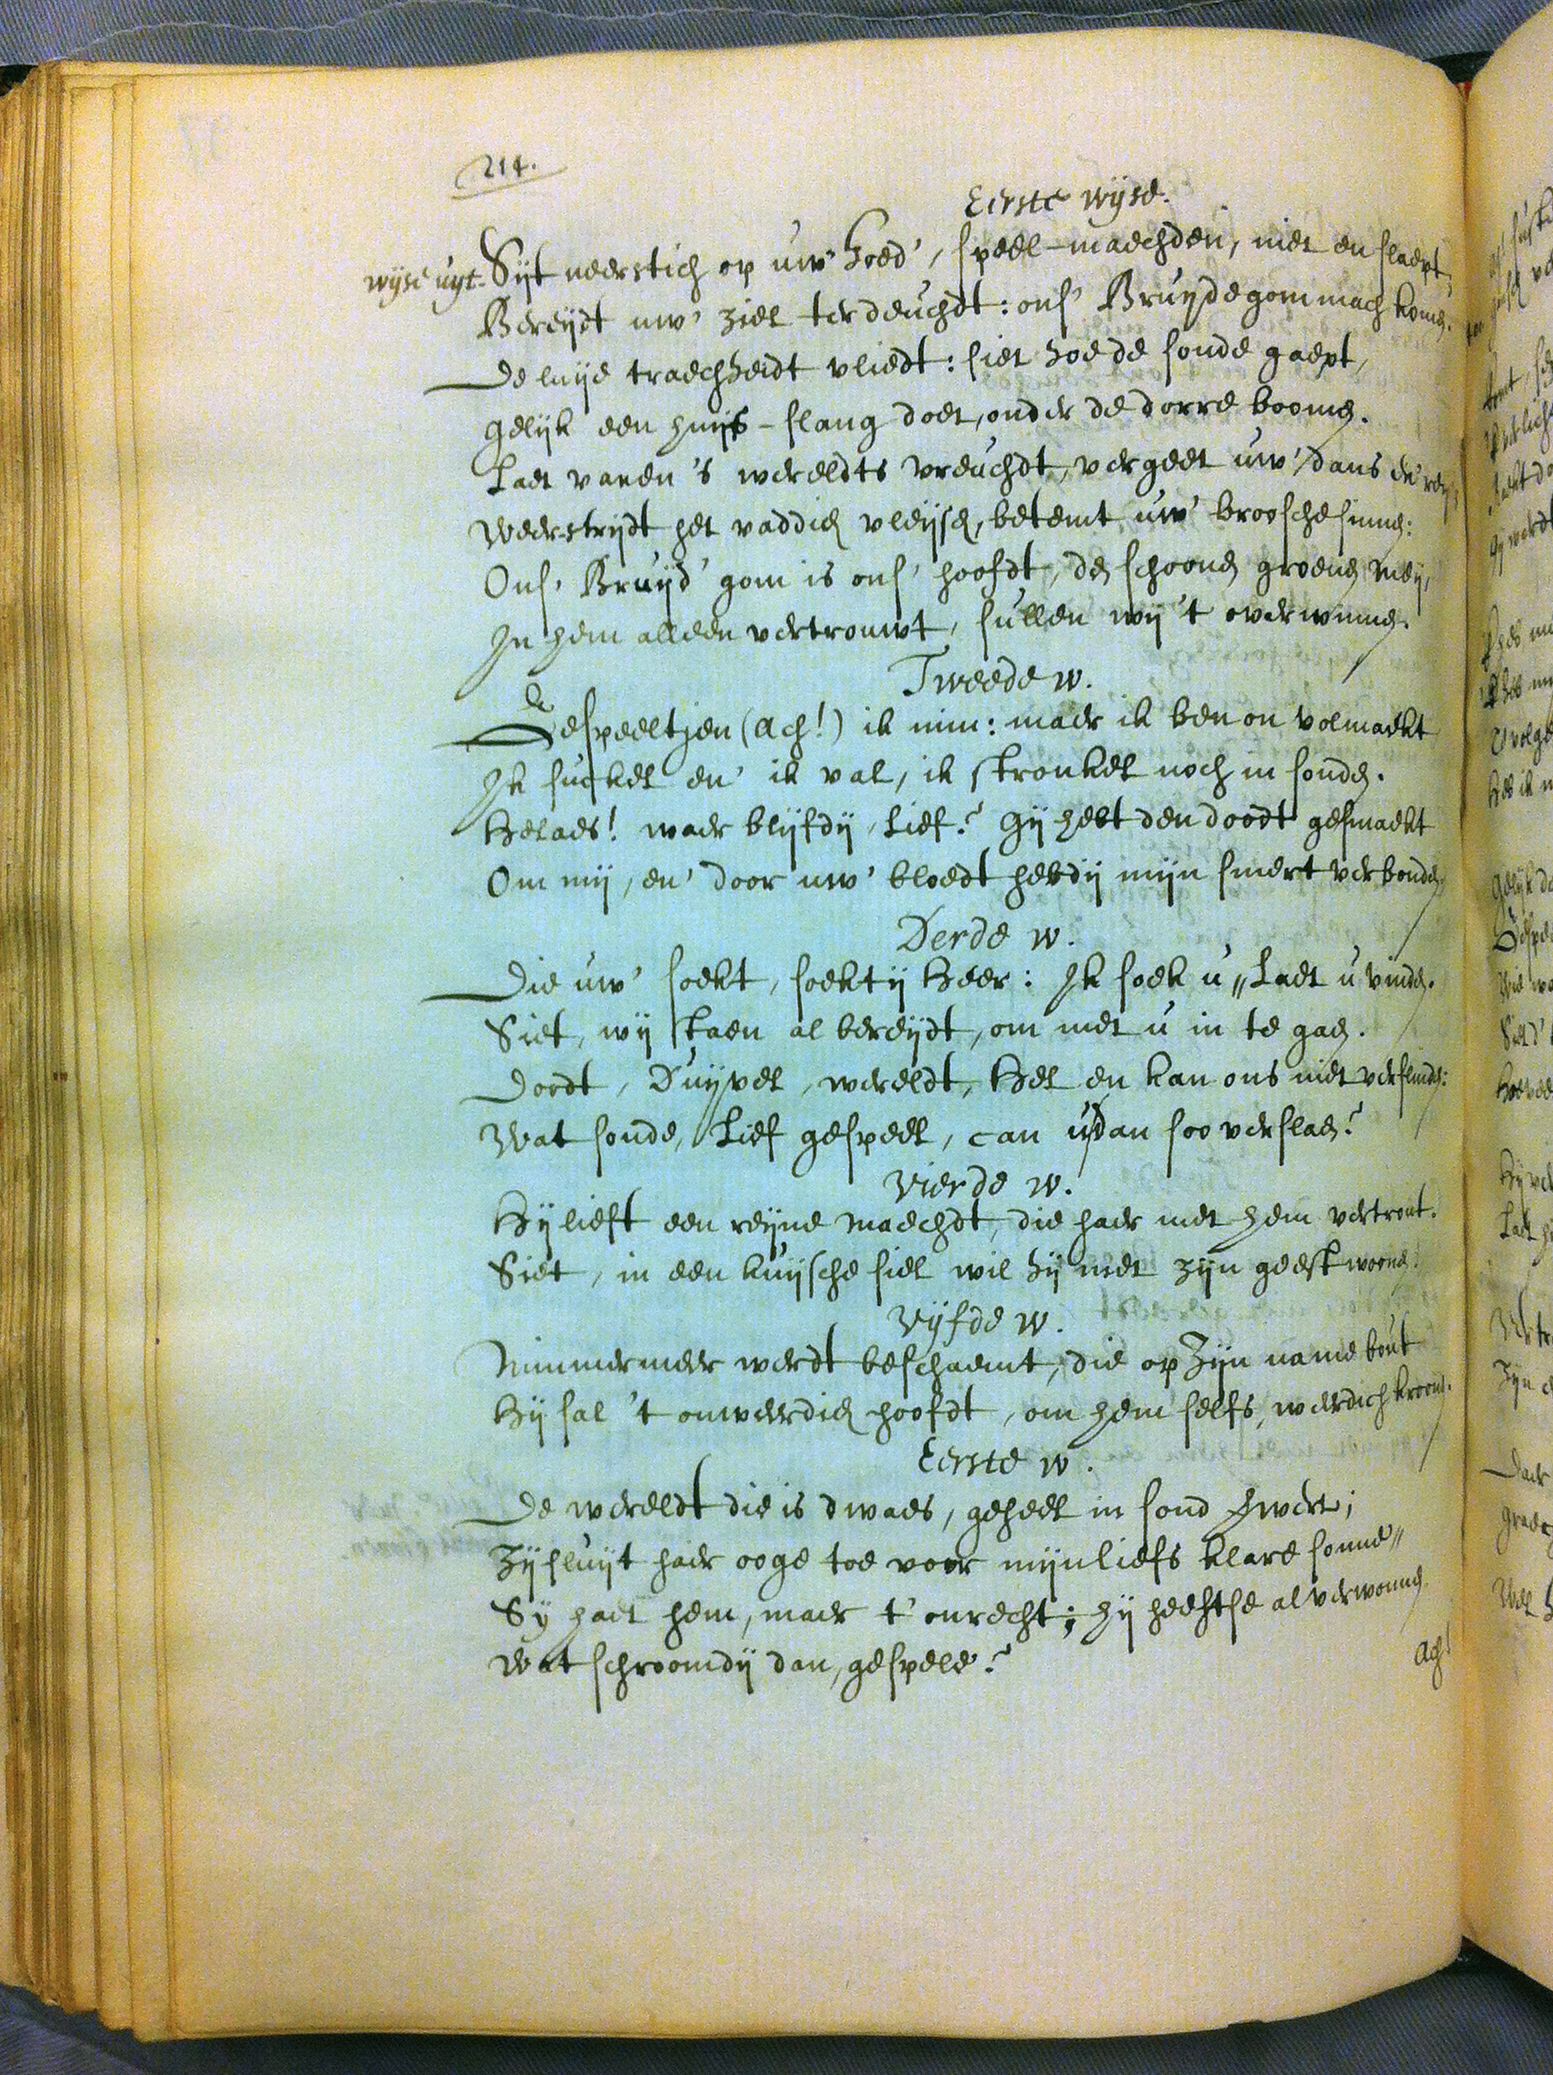 214.
Eerste wijse.
wijse uyt.
Sijt neerstich op uw' hoed', speel-maechden, niet en slaept,
Bereijdt uw' ziel ter deuchdt: ons' Bruijdegom mach komen.
De luije traechheidt vliedt: siet hoe de sonde gaept,
gelijk een huijs-slang doet, onder de dorre boomen.
Laet varen 's wereldts vreuchdt, vergeet uw' dans en' reij,
Weerstrijdt het vaddich vleijsch, betemt uw' broosche sinnen:
Ons' Bruijd'gom is ons' hoofdt, den schoonen groenen Meij,
In hem alleen vertrouwt, sullen wij 't overwinnen.
Tweede w.
Gespeeltjen (Ach!) ik min: maer ik ben onvolmaekt
Ik suckel en' ik val, ik stronkel noch in sonden.
Helaes! waer blijfdij, Lief? Gij hebt den doodt gesmaekt
Om mij, en' door uw' bloedt hebdij mijn smert verbonden
Derde w.
Die uw' soekt, soektij Heer: Ik soek u,, Laet u vinden.
Siet, wij staen al bereijdt, om met u in te gaen.
Doodt, Duijvel, wereldt, Hel en kan ons niet verslinden:
Wat sonde, Lief gespeel, can u dan soo verslaen?
Vierde w.
Hij lieft een reijne Maechdt, die haer met hem vertrout.
Siet, in een kuijsche siel wil hij met zijn geest woonen.
Vijfde w.
Nimmermeer werdt beschaemt, die op Zijn name bout
Hij sal 't onweerdich hoofdt, om hem selfs, weerdich kroonen.
Eerste w.
De wereldt die is dwaes, geheel in sond
Zij sluijt haer ooge toe voor mijn liefs klare sonne,,
Sij haet hem, maer t' onrecht; hij heeftse al verwonnen
Wat schroomdij dan, gespele?
Ach!